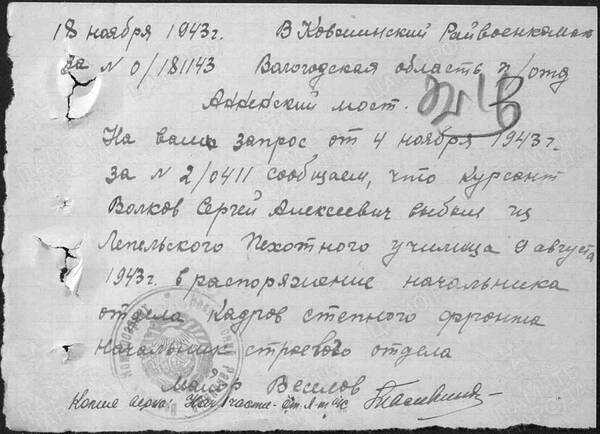 18 ноября 1943г. В Ковжинский Райвоенкомат
за N 0/181143 Вологодская область п/отд
Анненский мост.
На ваш запрос от 4 ноября 1943г.
за N 2/0411 сообщаем, что курсант
Волков Сергей Алексеевич выбыл из
Лепельского Пехотного училища 9 августа
1943г. в распоряжение начальника
отдела Кадров степного фронта
Начальник строевого отдела
Майор Веселов
Копия верна: Нач 1 части - ст. л-т а/с